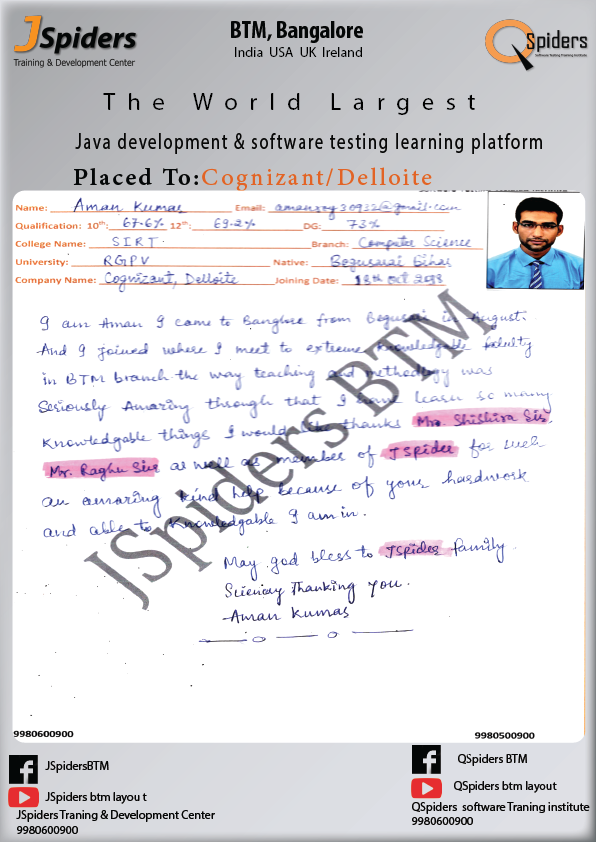 JSpiders
Training & Development Center
BTM, Bangalore
India USA UK Ireland
QSpiders
Software Testing Training Institute
The World Largest
Java development & software testing learning platform
Placed To:Cognizant/Delloite
Name: Aman Kumar Email:
Qualification: 10th: 67.6% 12th: 69.2% DG: 73%
College Name: SIRT. Branch: Computer Science
University: RGPV Native: Begusarai Bihar
Company Name: Cognizant, Delloite Joining Date: Oct
I am Aman I came to Banglore from Begusai in August.
And I joined where I meet to extreme Knowledgable faculty
in BTM branch the way teaching and methedlogy was
Seriously Amazing through that I have learn so many
Knowledgable things I would like thanks Mr. Shishira Sir,
Mr. Raghu Sir as well as member of JSpider for such
an amazing kind help because of your hardwork
and able to Knowledgable I am in.
May god bless to JSpider family
Thanking you.
Aman Kumar
JSpiders BTM
9980600900 9980500900
JSpidersBTM
JSpiders btm layou t
JSpiders Traning & Development Center
9980600900
QSpiders BTM
QSpiders btm layout
QSpiders software Traning institute
9980600900